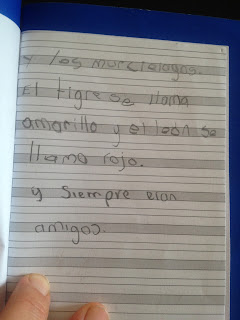 y los murcielagos.
El tigre se llama
amarillo y el león se
llama rojo.
y siempre eran
amigos.